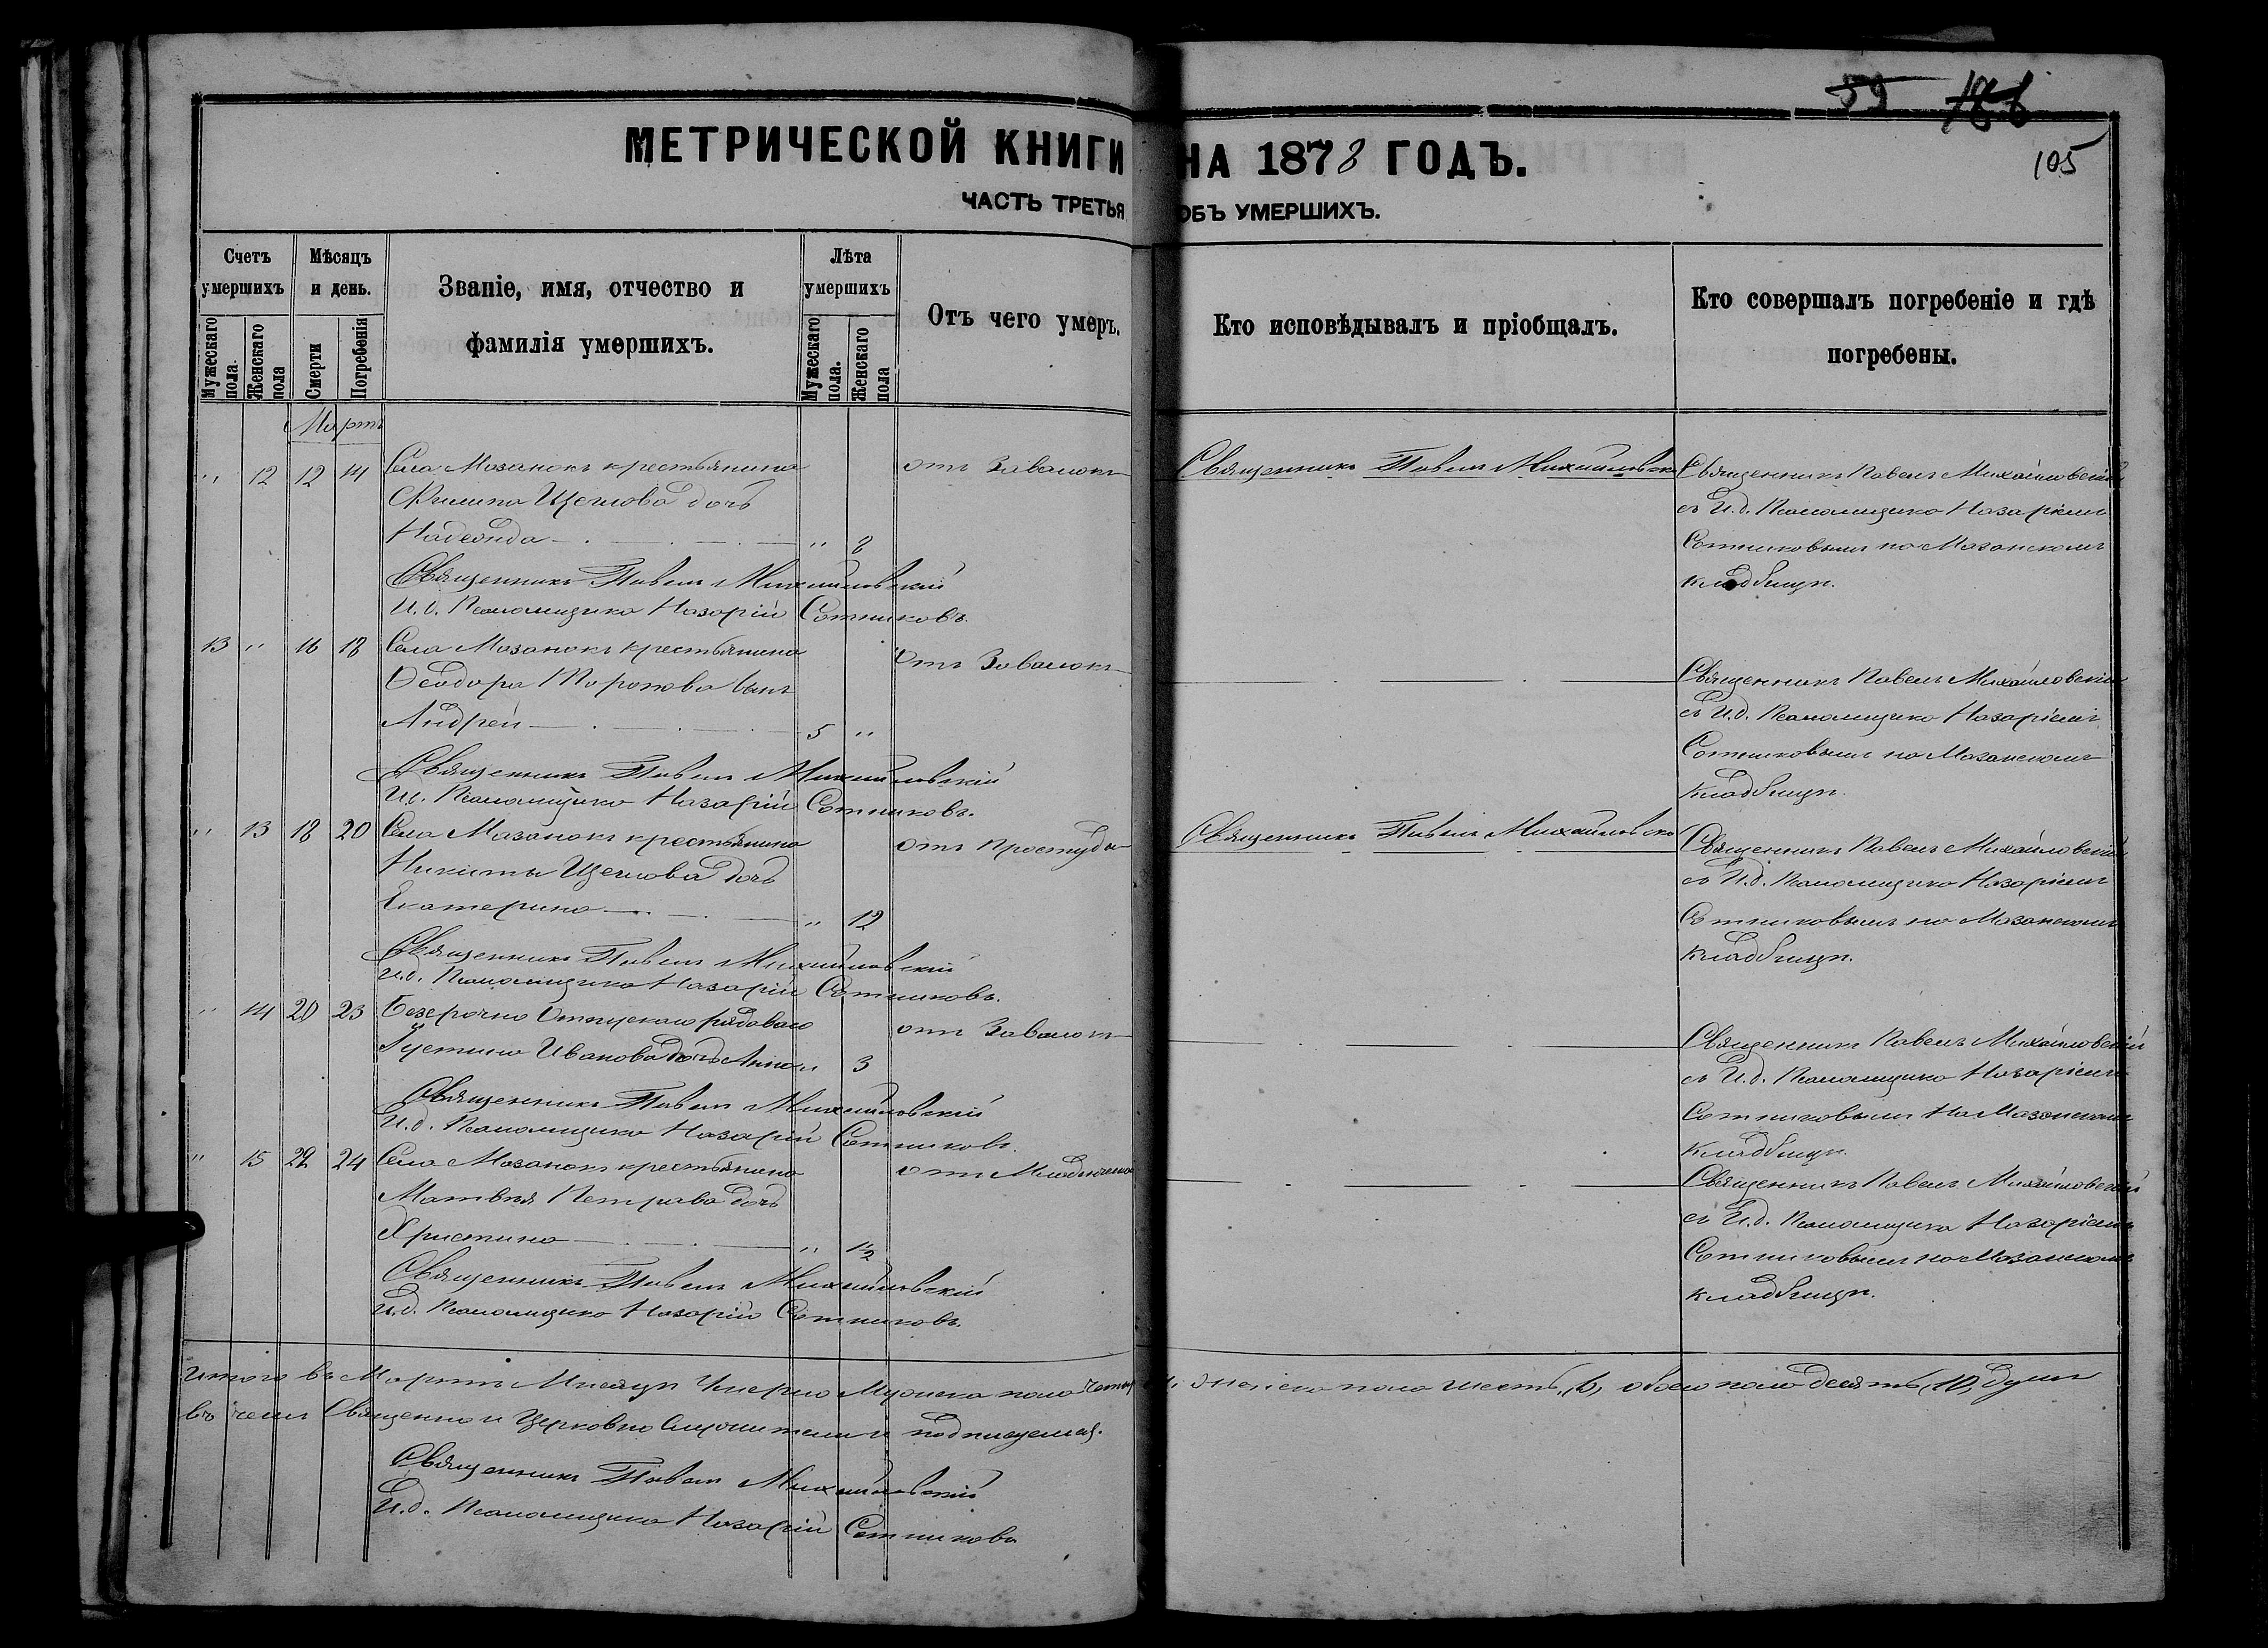 59
105
МЕТРИЧЕСКОЙ КНИГИ НА 1878 ГОДЪ.
ЧАСТЬ ТРЕТЬЯ ОБЪ УМЕРШИХЪ.
Счетъ умершихъ
Мужескаго пола.
Женскаго пола
Мѣсяцъ и день.
Смерти
Погребенія
Званіе, имя, отчество и
фамилія умершихъ.
Лѣта умершихъ
Мужескаго пола.
Женскаго пола
Отъ чего умеръ.
Кто исповѣдывалъ и пріобщалъ.
Кто совершалъ погребеніе и гдѣ
погребены.
Мартъ
" 12 12 14 Села Мазанокъ крестьянина
Филипа Щеглова дочь
Надежда " 8
отъ Завалокъ
Священникъ Павелъ Михайловскій
Священникъ Павелъ Михайловскій
съ И.д. Псаломщика Назаріемъ
Сотниковымъ на Мазанскомъ
кладбищѣ.
Священникъ Павелъ Михайловскій
И.д. Псаломщика Назарій Сотниковъ.
13 " 16 18 Села Мазанокъ крестьянина
Ѳеодора Торопова сынъ
Андрей 5 "
Отъ Завалокъ
Священникъ Павелъ Михайловскій
съ И.д. Псаломщика Назаріемъ
Сотниковымъ на Мазанскомъ
Кладбищѣ.
Священникъ Павелъ Михайловскій
И.д. Псаломщика Назарій Сотниковъ.
" 13 18 20 Села Мазанокъ крестьянина
Никиты Щеглова дочь
Екатерина " 12
отъ Простуды
Священникъ Павелъ Михайловскій
Священникъ Павелъ Михайловскій
съ И.д. Псаломщика Назаріемъ
Сотниковымъ на Мазанскомъ
Кладбищѣ.
Священникъ Павелъ Михайловскій
И.д. Псаломщика Назарій Сотниковъ.
" 14 20 23 Безсрочно Отпускнаго рядоваго
Густина Иванова дочь Анна " 3
отъ Завалокъ
Священникъ Павелъ Михайловскій
съ И.д. Псаломщика Назаріемъ
Сотниковымъ На Мазанскомъ
Кладбищѣ.
Священникъ Павелъ Михайловскій
И.д. Псаломщика Назарій Сотниковъ.
" 15 22 24 Села Мазанокъ крестьянина
Матвѣя Петрова дочь
Христина " 1/2
отъ Младенческой
Священникъ Павелъ Михайловскій
съ И.д. Псаломщика Назаріемъ
Сотниковымъ на Мазанскомъ
кладбищѣ.
Священникъ Павелъ Михайловскій
И.д. Псаломщика Назарій Сотниковъ.
Итого въ Мартѣ Мѣсяцѣ Умерло Мужеска пола четыре Женска пола шесть, (6) обоего пола десять (10) душъ
въ чемъ Священно и Церковно Служители и подписуемся.
Священникъ Павелъ Михайловскій
И.д. Псаломщика Назарій Сотниковъ